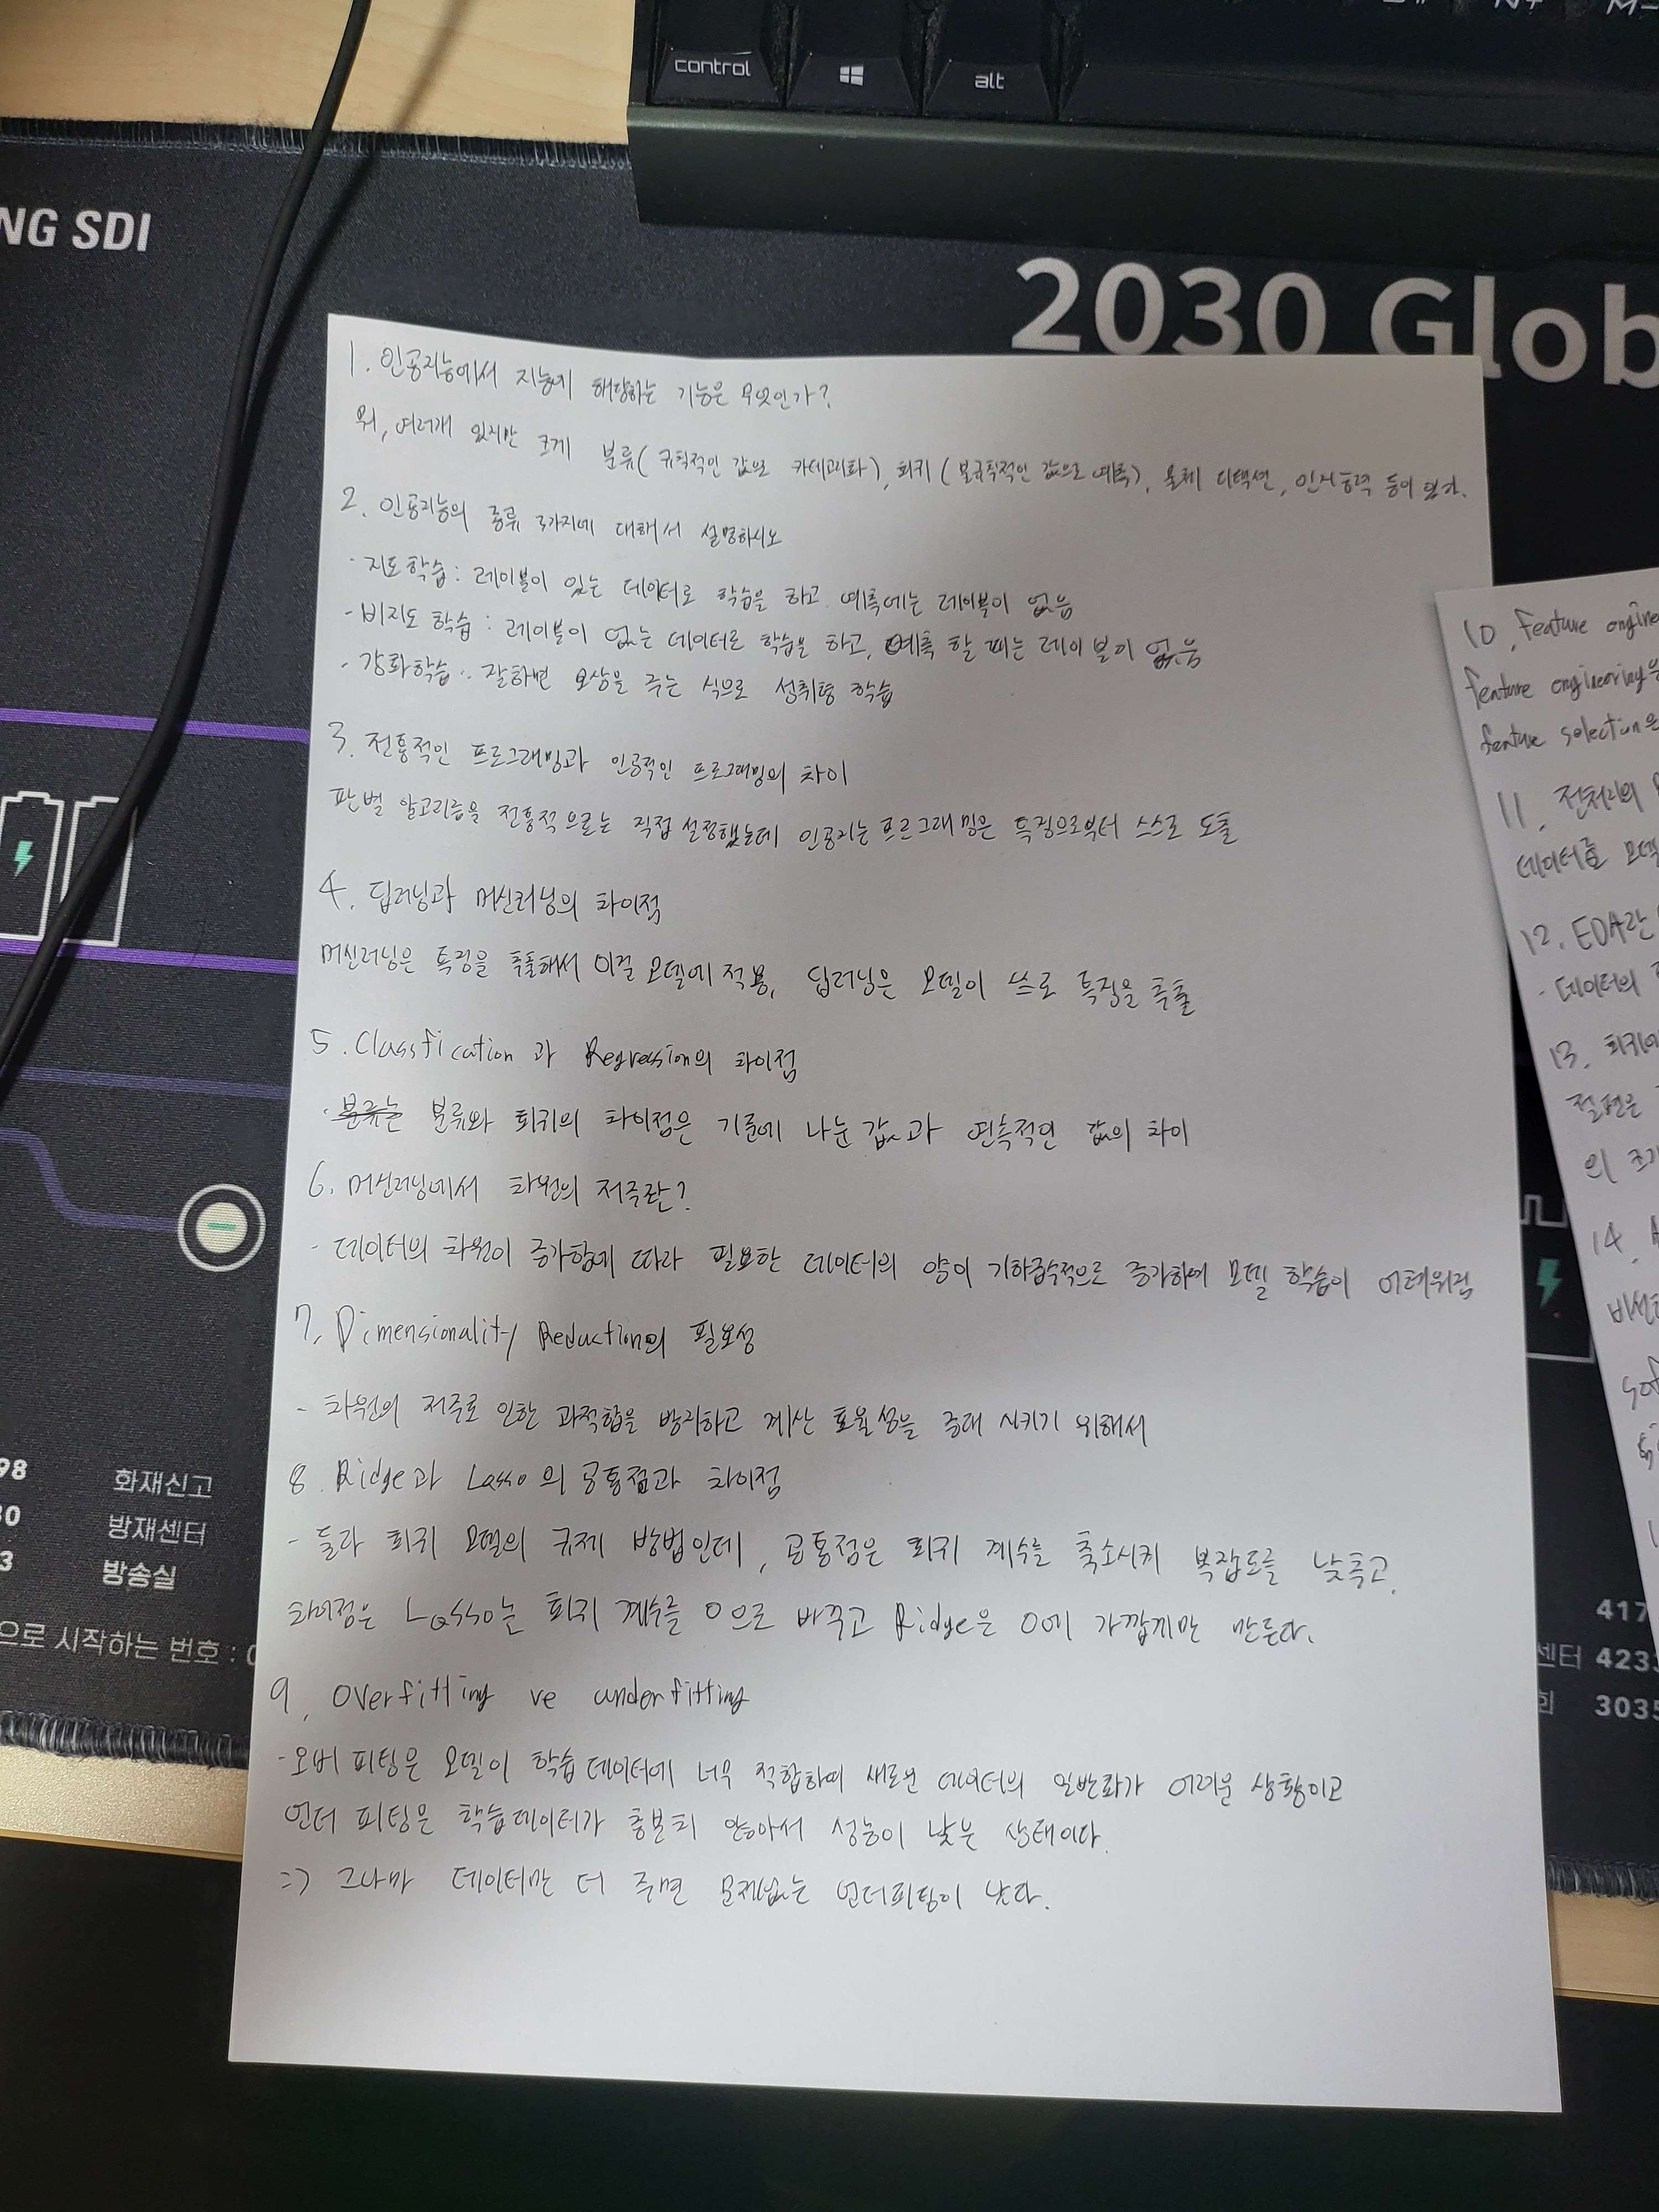 control
alt
NG SDI
2030 Glob
1. 인공지능에서 지능에 해당하는 기능은 무엇인가?
뭐, 여러개 있지만 크게 분류(규칙적인 값으로 카테고리화), 회귀(불규칙적인 값으로 예측), 물체 디텍션, 인식능력 등이 있다.
2. 인공지능의 종류 3가지에 대해서 설명하시오
- 지도학습: 레이블이 있는 데이터로 학습을 하고 예측에는 레이블이 없음
- 비지도 학습: 레이블이 없는 데이터로 학습을 하고, 예측 할 때는 레이블이 없음
- 강화학습: 잘하면 보상을 주는 식으로 성취형 학습
3. 전통적인 프로그래밍과 인공적인 프로그래밍의 차이
판별 알고리즘을 전통적으로는 직접 설정했는데 인공지능 프로그래밍은 특징으로부터 스스로 도출
4. 딥러닝과 머신러닝의 차이점
머신러닝은 특징을 추출해서 이걸 모델에 적용, 딥러닝은 모델이 스스로 특징을 추출
5. Classfication과 Regression의 차이점
- 분류는 분류와 회귀의 차이점은 기준에 나눈 값과 연속적인 값의 차이
6. 머신러닝에서 차원의 저주란?
- 데이터의 차원이 증가함에 따라 필요한 데이터의 양이 기하급수적으로 증가하여 모델 학습이 어려워짐
7. Dimensionality Reduction의 필요성
- 차원의 저주로 인한 과적합을 방지하고 계산 효율성을 증대 시키기 위해서
8. Ridge과 Lasso의 공통점과 차이점
- 둘다 회귀 모델의 규제 방법인데, 공통점은 회귀 계수를 축소시켜 복잡도를 낮추고,
차이점은 Lasso는 회귀 계수를 0으로 바꾸고 Ridge은 0에 가깝게만 만든다.
9. Overfitting vs underfitting
- 오버 피팅은 모델이 학습 데이터에 너무 적합하여 새로운 데이터의 일반화가 어려운 상황이고
언더 피팅은 학습데이터가 충분치 않아서 성능이 낮은 상태이다.
=> 그나마 데이터만 더 주면 문제없는 언더피팅이 낫다.
10. Feature engine
feature engineering은
feature selection은
11. 전처리의
데이터를 모델
12. EDA란
- 데이터의
13. 회귀에
절편은
의
14.
98 화재신고
30 방재센터
3 방송실
으로 시작하는 번호 :
417
센터 423
회 303